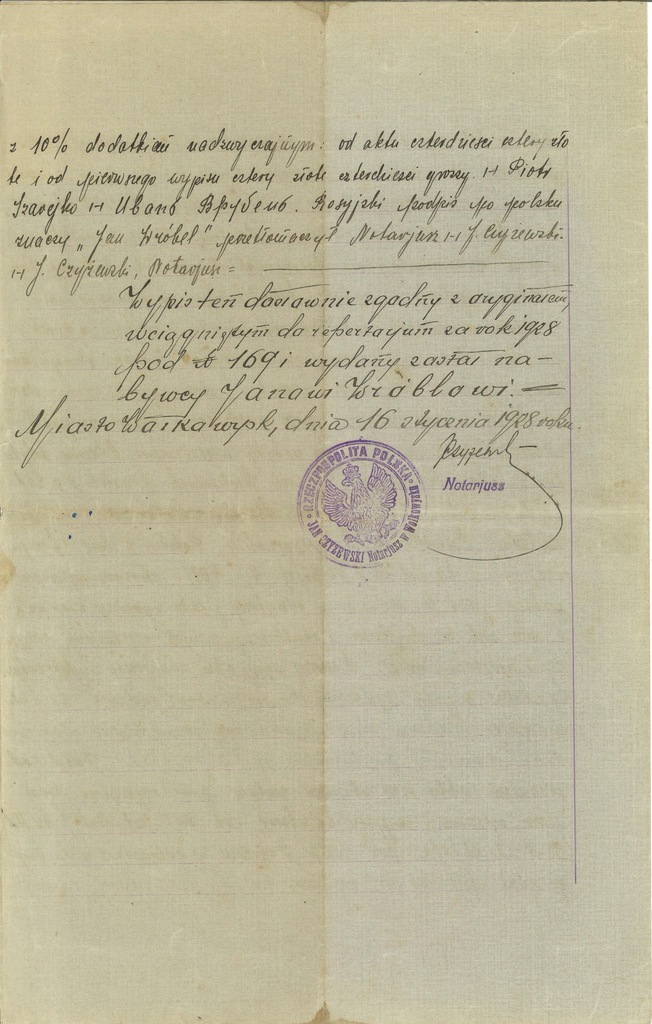 z 10% dodatkiem nadzwyczajnym: od aktu czterdzieści cztery zło
te i od pierwszego wypisu cztery złote czterdzieści groszy. Piotr
Иванъ Врубель. Rosyjski podpis po polsku
znaczy "Jan Wróbel" przetłomaczył Notarjusz J. Czyżewski.
J. Czyżewski, Notarjusz =
Wypis ten dosłownie zgodny z oryginałem,
wciągniętym do repertorjum za rok 1928
pod № 169 i wydany został na-
bywcy Janowi Wróblowi. =
Miasto Wołkowysk, dnia 16 stycznia 1928 roku.
Czyżewski
Notarjusz
RZECZPOSPOLITA POLSKA
JAN CZYŻEWSKI Notarjusz w Wołkowysku